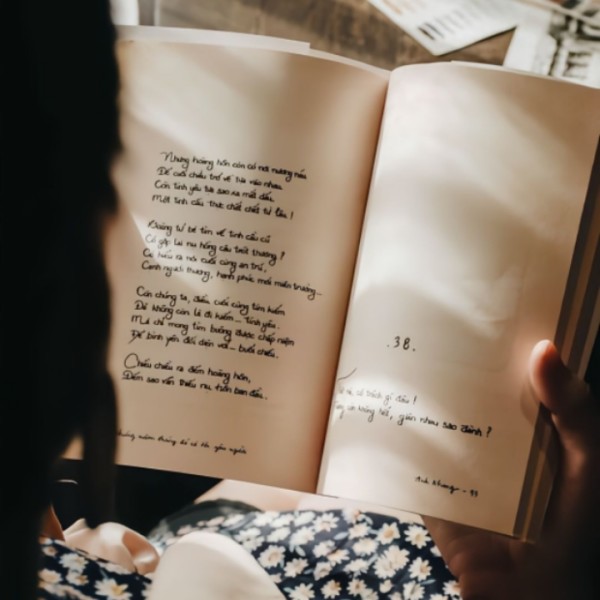 Nhưng hoàng hôn còn có nơi nương náu
Để cuối chiều trở về tựa vào nhau.
Còn tình yêu tại sao xa mất dấu.
Một tình cầu thực chất chết từ lâu!
Đừng tự bé tìm về tình cầu cũ
Có gặp lại nụ hồng câu trót thương?
Có hiểu ra nơi cuối cùng an trú,
Cạnh người thương, hạnh phúc mới miên trường...
Còn chúng ta, điều cuối cùng tìm kiếm
Để không còn là đi kiếm... tình yêu.
Mà chỉ mong tìm buồng được chấp niệm
Để bình yên đối diện với... buổi chiều.
Chiều chiều ra đếm hoàng hôn,
Đếm sao vẫn thiếu nụ hôn ban đầu.
.38.
trách gì đâu!
không hết, giận nhau sao đành?